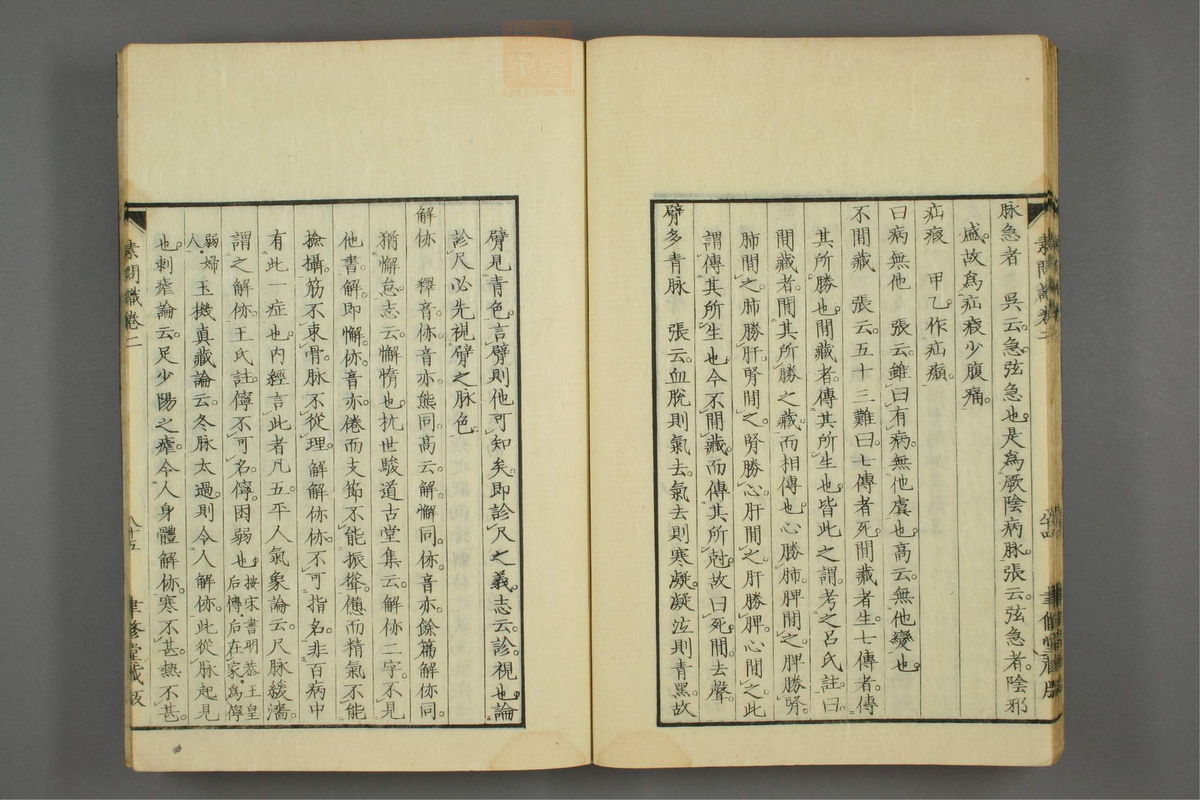 脉急者 吳云。急。弦急也。是爲厥陰病脉。張云。弦急者。陰邪
盛。故爲疝瘕少腹痛。
疝瘕 甲乙作疝癩。
曰病無他 張云。雖曰有病。無他虞也。高云。無他變也。
不間藏 張云。五十三難曰。七傳者死。間藏者生。七傳者。傳
其所勝也。間藏者。傳其所生也。皆此之謂。考之呂氏註曰。
間藏者。間其所勝之藏。而相傳也。心勝肺。脾間之。脾勝腎。
肺間之。肺勝肝。腎間之。腎勝心。肝間之。肝勝脾。心間之。此
謂傳其所生也。今不間藏。而傳其所尅。故曰死。間。去聲。
臂多青脉 張云。血脫則氣去。氣去則寒凝。凝泣則青黑。故
臂見青色。言臂則他可知矣。即診尺之義。志云。診。視也。論
診尺必先視臂之脉色。
解㑊 釋音。㑊音亦。熊同。高云。解。懈同。㑊音亦。餘篇解㑊同。
猶懈怠。志云。懈惰也。抗世駿道古堂集云。解㑊二字。不見
他書。解即懈。㑊音亦。倦而支節不能振聳。憊而精氣不能
撿攝。筋不束骨。脉不從理。解解㑊㑊。不可指名。非百病中
有此一症也。內經言此者凡五。平人氣象論云。尺脉緩濇。
謂之解㑊。王氏註。儜不可名。儜。困弱也。按宋書明恭王皇后傳。后在家爲儜
弱婦人。玉機真藏論云。冬脉太過。則令人解㑊。此從脉起見
也。刺瘧論云。足少陽之瘧。令人身體解㑊。寒不甚。熱不甚。
素問識卷二
八十五
聿修堂藏版